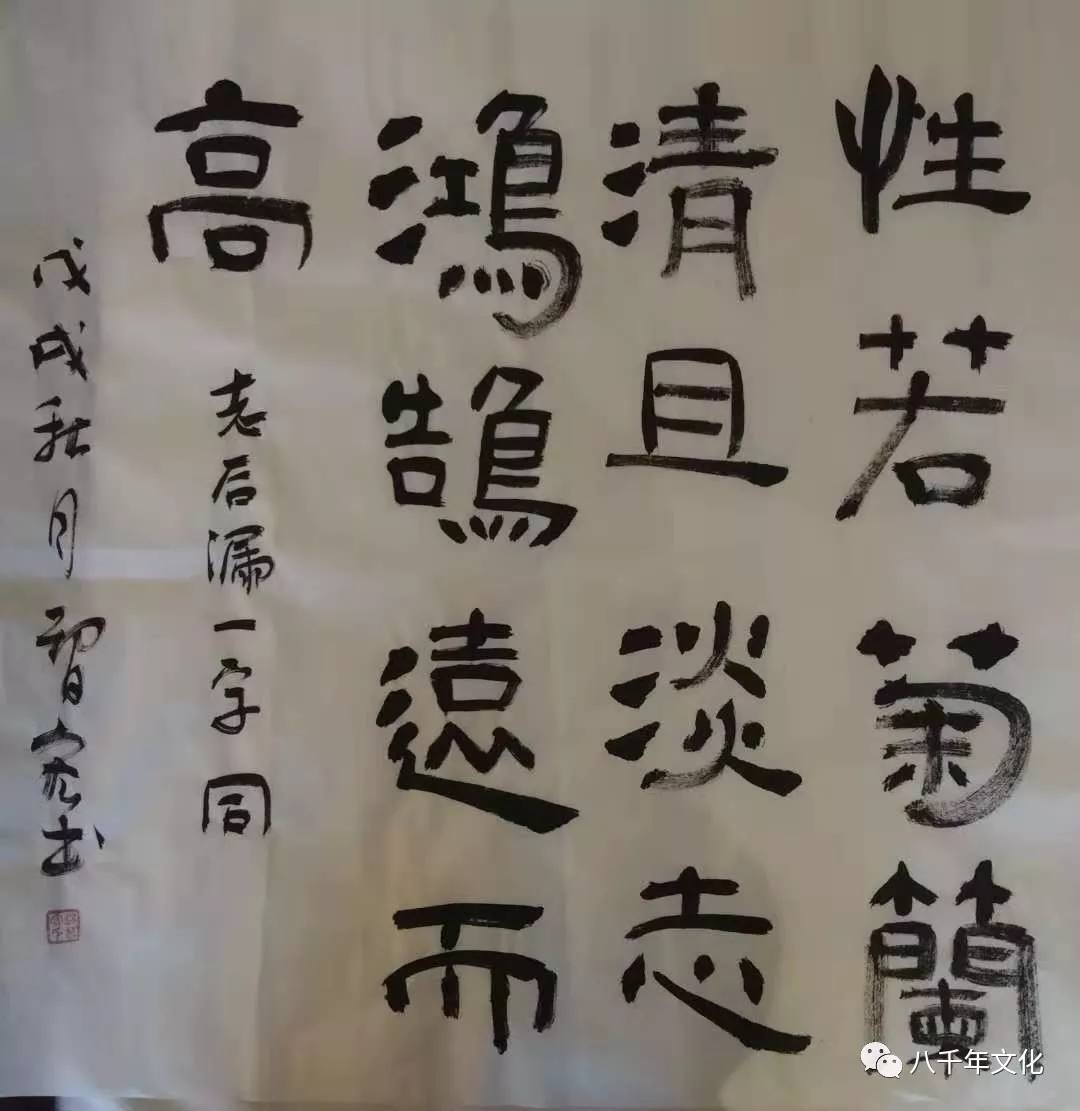 性若菊蘭
清且淡志
鴻鵠遠而
高
志后漏一字同
戊戌秋月智宏书
八千年文化